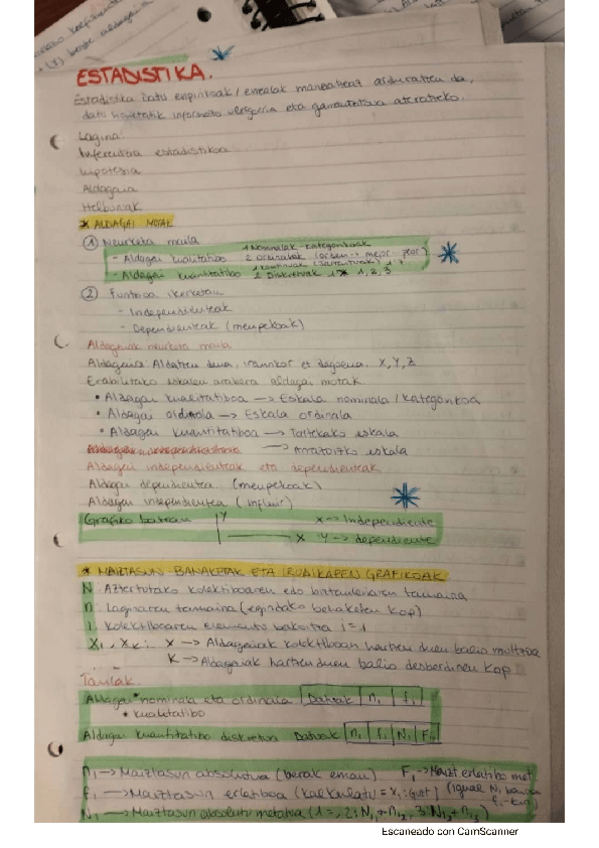 ESTADISTIKA.
Estadistika: Datu enpirikoak / errealak maneiatzeaz arduratzen da,
datu hauetatik informazio ulergarria eta garrantzitsua ateratzeko.
Lagina:
Inferentzia estadistikoa
Hipotesia
Aldagaia
Helburuak
* ALDAGAI MOTAK
① Neurketa maila 1 Nominalak-kategorikoak
- Aldagai kualitatibo 2 ordinalak (orden → mejor-peor)
- Aldagai kuantitatibo 2 Diskretuak 1, 2, 3
② Funtzioa ikerketan
- Independienteak
- Dependienteak (menpekoak)
Aldagaiak neurketa maila
Aldagaia: Aldatzen dena, konstantea ez dena. X, Y, Z
Erabilitako eskalen arabera aldagai motak.
• Aldagai kualitatiboa → Eskala nominala / kategorikoa
• Aldagai ordinala → Eskala ordinala
• Aldagai kuantitatiboa → Tartekako eskala
→ Arrazoizko eskala
Aldagai independienteak eta dependienteak
Aldagai dependientea (menpekoak)
Aldagai independientea (influir)
Grafiko batean Y X X → Independiente
Y → dependiente
* MAIZTASUN BANAKETAK ETA IRUDIKAPEN GRAFIKOAK
N: Aztertutako kolektiboaren edo biztanleriaren tamaina
n: Laginaren tamaina (egindako behaketen kop)
i: kolektiboaren elementu bakoitza i = 1
X → Aldagaiak kolektiboan hartzen duen balio multzoa
K → Aldagaiak hartzen duen balio desberdinen kop
Taulak
Aldagai nominala eta ordinala Datuak nᵢ fᵢ
• kualitatibo
Aldagai kuantitatibo diskretua Datuak nᵢ fᵢ Nᵢ Fᵢ
nᵢ → Maiztasun absolutua (berak eman) Fᵢ → Maizt. erlatibo met
fᵢ → Maiztasun erlatiboa (kalkulatu = Xᵢ : guzt) (igual Nᵢ baina
Nᵢ → Maiztasun absolutu metatua
Escaneado con CamScanner